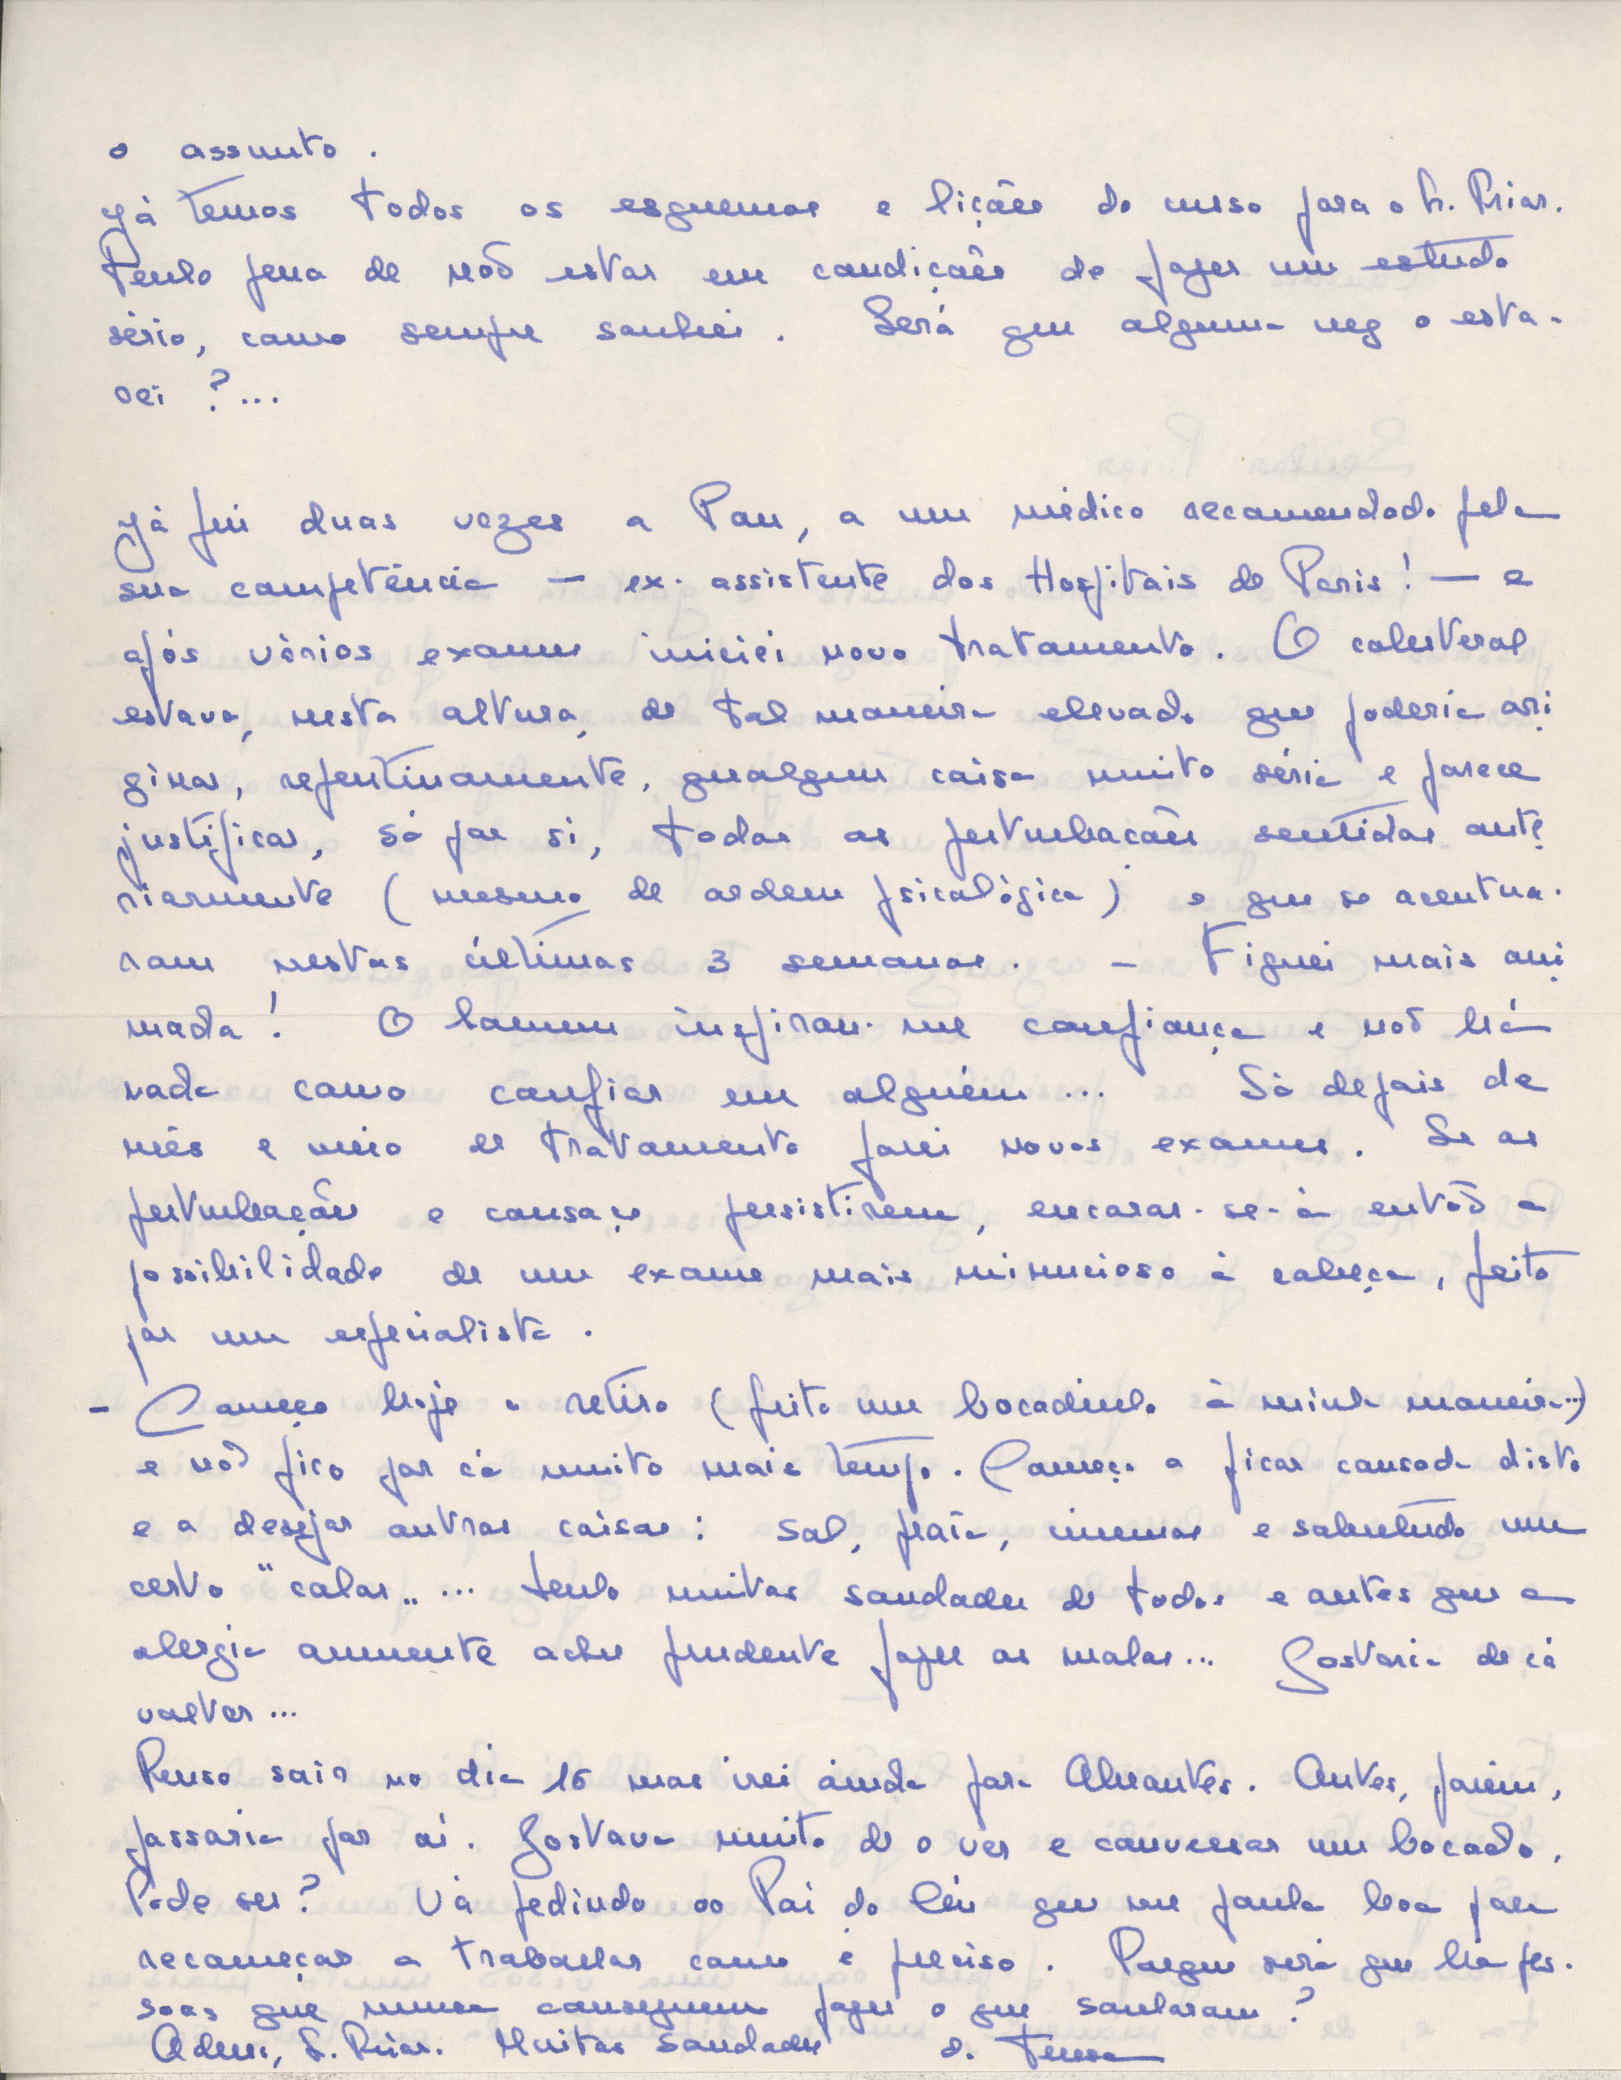 o assunto.
Já temos todos os esquemas e lições do curso para o Sr. Prior.
Tenho pena de não estar em condições de fazer um estudo
sério, como sempre sonhei. Será que alguma vez o esta-
rei?...
Já fui duas vezes a Pau, a um médico recomendado pela
sua competência — ex. assistente dos Hospitais de Paris! — e
após vários exames iniciei novo tratamento. O colesterol
estava, nesta altura, de tal maneira elevado que poderia ori
ginar, repentinamente, qualquer coisa muito séria e parece
justificar, só por si, todas as perturbações sentidas ante
riormente (mesmo de ordem psicológica) e que se acentua-
ram nestas últimas 3 semanas. - Fiquei mais ani
mada! O homem inspirou-me confiança e não há
nada como confiar em alguém... Só depois de
mês e meio de tratamento farei novos exames. Se as
perturbações e cansaço persistirem, encarar-se-à então a
possibilidade de um exame mais minucioso à cabeça, feito
por um especialista.
- Começo hoje o retiro (feito um bocadinho à minha maneira...)
e não fico por cá muito mais tempo. Começo a ficar cansada disto
e a desejar outras coisas: sol, praia, cinemas e sobretudo um
certo "calor"... tenho muitas saudades de todos e antes que a
alergia aumente acho prudente fazer as malas... Gostaria de cá
voltar...
Penso sair no dia 16 mas irei ainda para Abrantes. Antes, porém,
passaria por aí. Gostava muito de o ver e conversar um bocado.
Pode ser? Vá pedindo ao Pai do Céu que me ponha boa para
recomeçar a trabalhar como é preciso. Porque será que há pes-
soas que nunca conseguem fazer o que sonharam?
Adeus, S. Prior. Muitas saudades d. Teresa